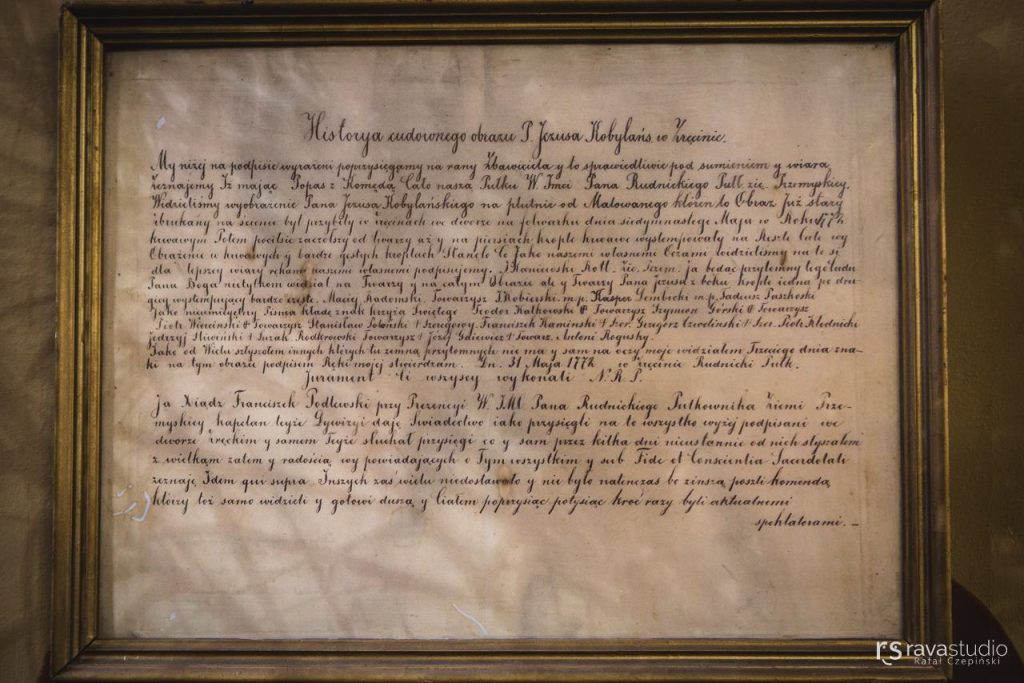 Historya cudownego obrazu P. Jezusa Kobylańs. w Zręcinie.
My niżej na podpisie wyrażeni poprzysięgamy na rany Zbawiciela y to sprawiedliwie pod sumieniem y wiarą
zeznajemy Iż mając Popas z Komędą Cało naszą Pułku W. Imci Pana Rudnickiego Pułł. zie. Przemyskiey.
Widzieliśmy wyobrażenie Pana Jezusa Kobylańskiego na płutnie od Malowanego któren to Obraz Już stary
zbrukany na ścienie był przybity w Zręcinach we dworze na folwarku dnia siedymnastego Maja w Roku 1772
krwawym Potem pocić się zaczoł y od twarzy aż y na piersiach krople krwawe występowały na Reszte Całe wy
Obrażenie w krwawych y bardzo gęstych kroplach Staneło Co Jako naszemi własnemi Oczami widzieliśmy na to si
dla lepszey wiary rękami naszemi własnemi podpisujemy. Rott. zie. Przem. ja będąc przytomny tego Cudu
Pana Boga nietylkom widział na Twarzy y na całym Obrazie ale y Twarzy Pana jezusa z boku krople iedna po dru
giey występujący bardzo czyste. Maciy Radomski Towarzysz m.p. Kasper Dembecki m.p. Tadeusz Paszkoski
Jako nieumiejętny Pisma kładę znak krzyża Świętego Teodor Kalkowski Towarzysz Szymon Górski Towarzysz
Piotr Wierciński Towarzysz Stanisław † Szeregowy. Franciszek Kamiński † Szer. Grzegorz † Szer. Piotr Kłodnicki
Jędrzyj Śliwiński † Towarzysz † Józef † Towarz. Antoni Roguski.
Jako od Wielu słyszałem innych których tu zemną przytomnych nie ma y sam na oczy moje widziałem Trzeciego dnia zna-
ki na tym obrazie podpisem Ręki mojej stwierdzam. Dn. 31 Maja 1772 w Zręcinie Rudnicki Pułk.
Jurament Ci wszyscy wykonali N.R.P.
Ja Xiądz Franciszek Podlewski przy Prezencyi W. IMI Pana Rudnickiego Pułkownika Ziemi Prze-
myskiey kapelan teyże Dywizyi daję Świadectwo iako przysięgli na to wszystko wyżej podpisani we
dworze Zręckim y samem Teyże słuchał przysięgi co y sam przez kilka dni nieustannie od nich słyszałem
z wielkąm żalem y radością wy powiadających o Tym wszystkim y sub Fide et Conscientia Sacerdotali
zeznaję Idem qui supra. Inszych zaś wielu niedostawało y nie było natenczas bo z inszą poszli komendą
którzy toż samo widzieli y gotowi duszą y Ciałem poprzysiąc potysiąc kroć razy byli aktualnemi
spektatorami. —
rs ravastudio
Rafał Czepiński